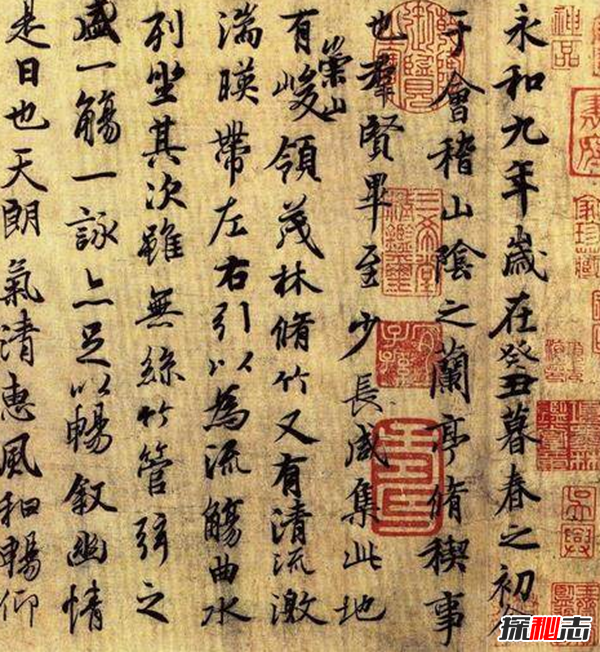 永和九年歲在癸丑暮春之初會
于會稽山陰之蘭亭脩稧事
也羣賢畢至少長咸集此地
有崇山峻領茂林脩竹又有清流激
湍暎帶左右引以為流觴曲水
列坐其次雖無絲竹管弦之
盛一觴一詠亦足以暢叙幽情
是日也天朗氣清惠風和暢仰
神品
三希堂精鑑璽
宜子孫
吳興
探秘志